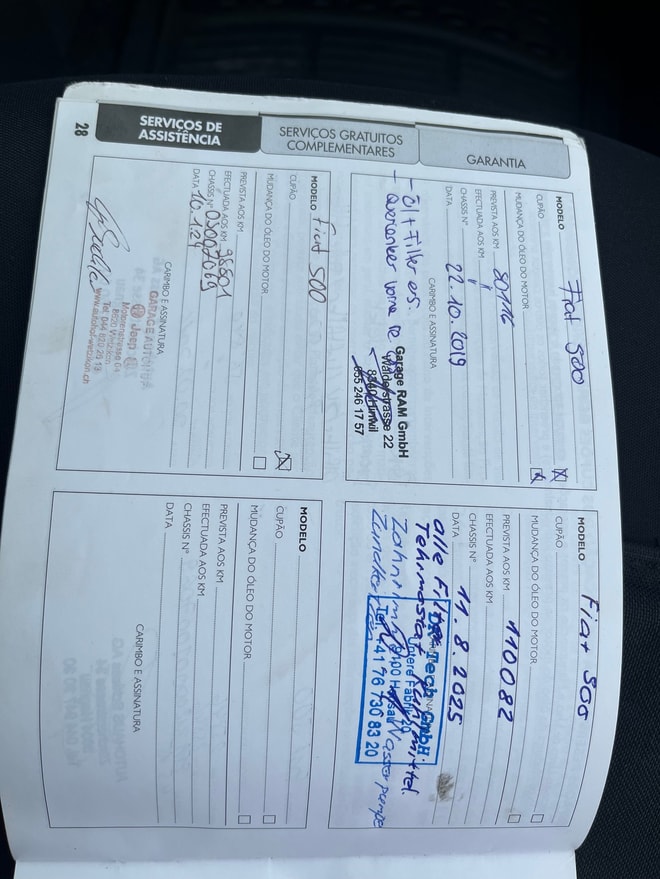 GARANTIA
SERVIÇOS GRATUITOS
COMPLEMENTARES
SERVIÇOS DE
ASSISTÊNCIA
28
MODELO Fiat 500
CUPÃO
MUDANÇA DO ÓLEO DO MOTOR
PREVISTA AOS KM 80116
EFECTUADA AOS KM "
CHASSIS N° "
DATA 22.10.2019
CARIMBO E ASSINATURA
- Öl + Filter ers.
- Querlenker vorne re
Garage RAM GmbH
Walderstrasse 22
8340 Hinwil
055 246 17 57
MODELO Fiat 500
CUPÃO
MUDANÇA DO ÓLEO DO MOTOR
PREVISTA AOS KM 110082
EFECTUADA AOS KM
CHASSIS N°
DATA 11.8.2025
alle Filter
Kühlmittel.
Wasserpumpe
Tech GmbH
Tel. +41 76 730 83 20
MODELO Fiat 500
CUPÃO
MUDANÇA DO ÓLEO DO MOTOR
PREVISTA AOS KM
EFECTUADA AOS KM 98801
CHASSIS N° 03002069
DATA 10.1.24
CARIMBO E ASSINATURA
Jeep
8620 Wetzikon
MODELO
CUPÃO
MUDANÇA DO ÓLEO DO MOTOR
PREVISTA AOS KM
EFECTUADA AOS KM
CHASSIS N°
DATA
CARIMBO E ASSINATURA